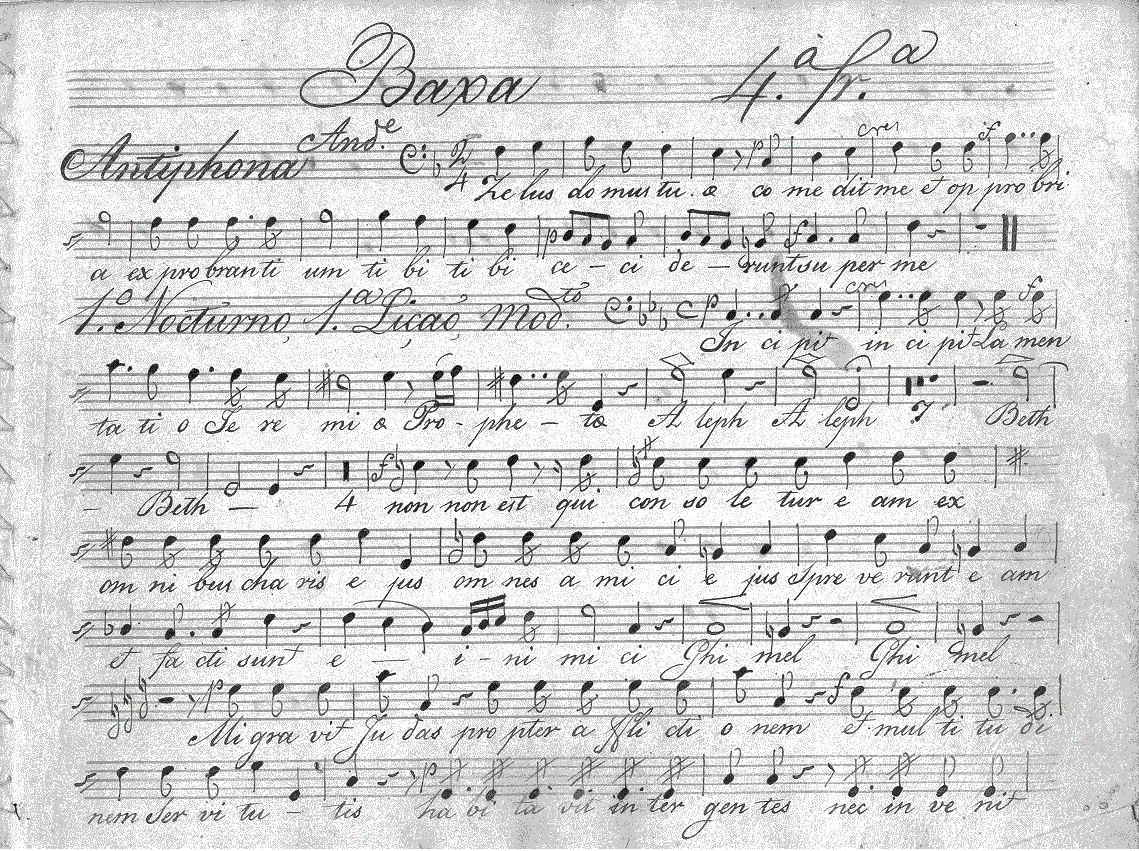 Baxa 4.ª fr.ª à
Antiphona And.e 2/4 cres f
Ze lus do mus tu . æ co me dit me et op pro bri
a ex pro bran ti um ti bi ti bi ce - ci de - runt su per me
1.º Nocturno, 1.ª Liçaõ, Mod.to C p cres f
In ci pit in ci pit La men
ta ti o Je re mi æ Pro - phe - tæ A leph A leph 7 Beth
- Beth - 4 non non est qui con so le tur e am ex
om ni bus cha ris e jus om nes a mi ci e jus spre ve runt e am
et fa cti sunt e - i - ni mi ci Ghi mel Ghi mel
Mi gra vit Ju das pro pter a ffli cti o nem et mul ti tu di
nem ser vi tu - tis ha bi ta vit in ter gen tes nec in ve nit